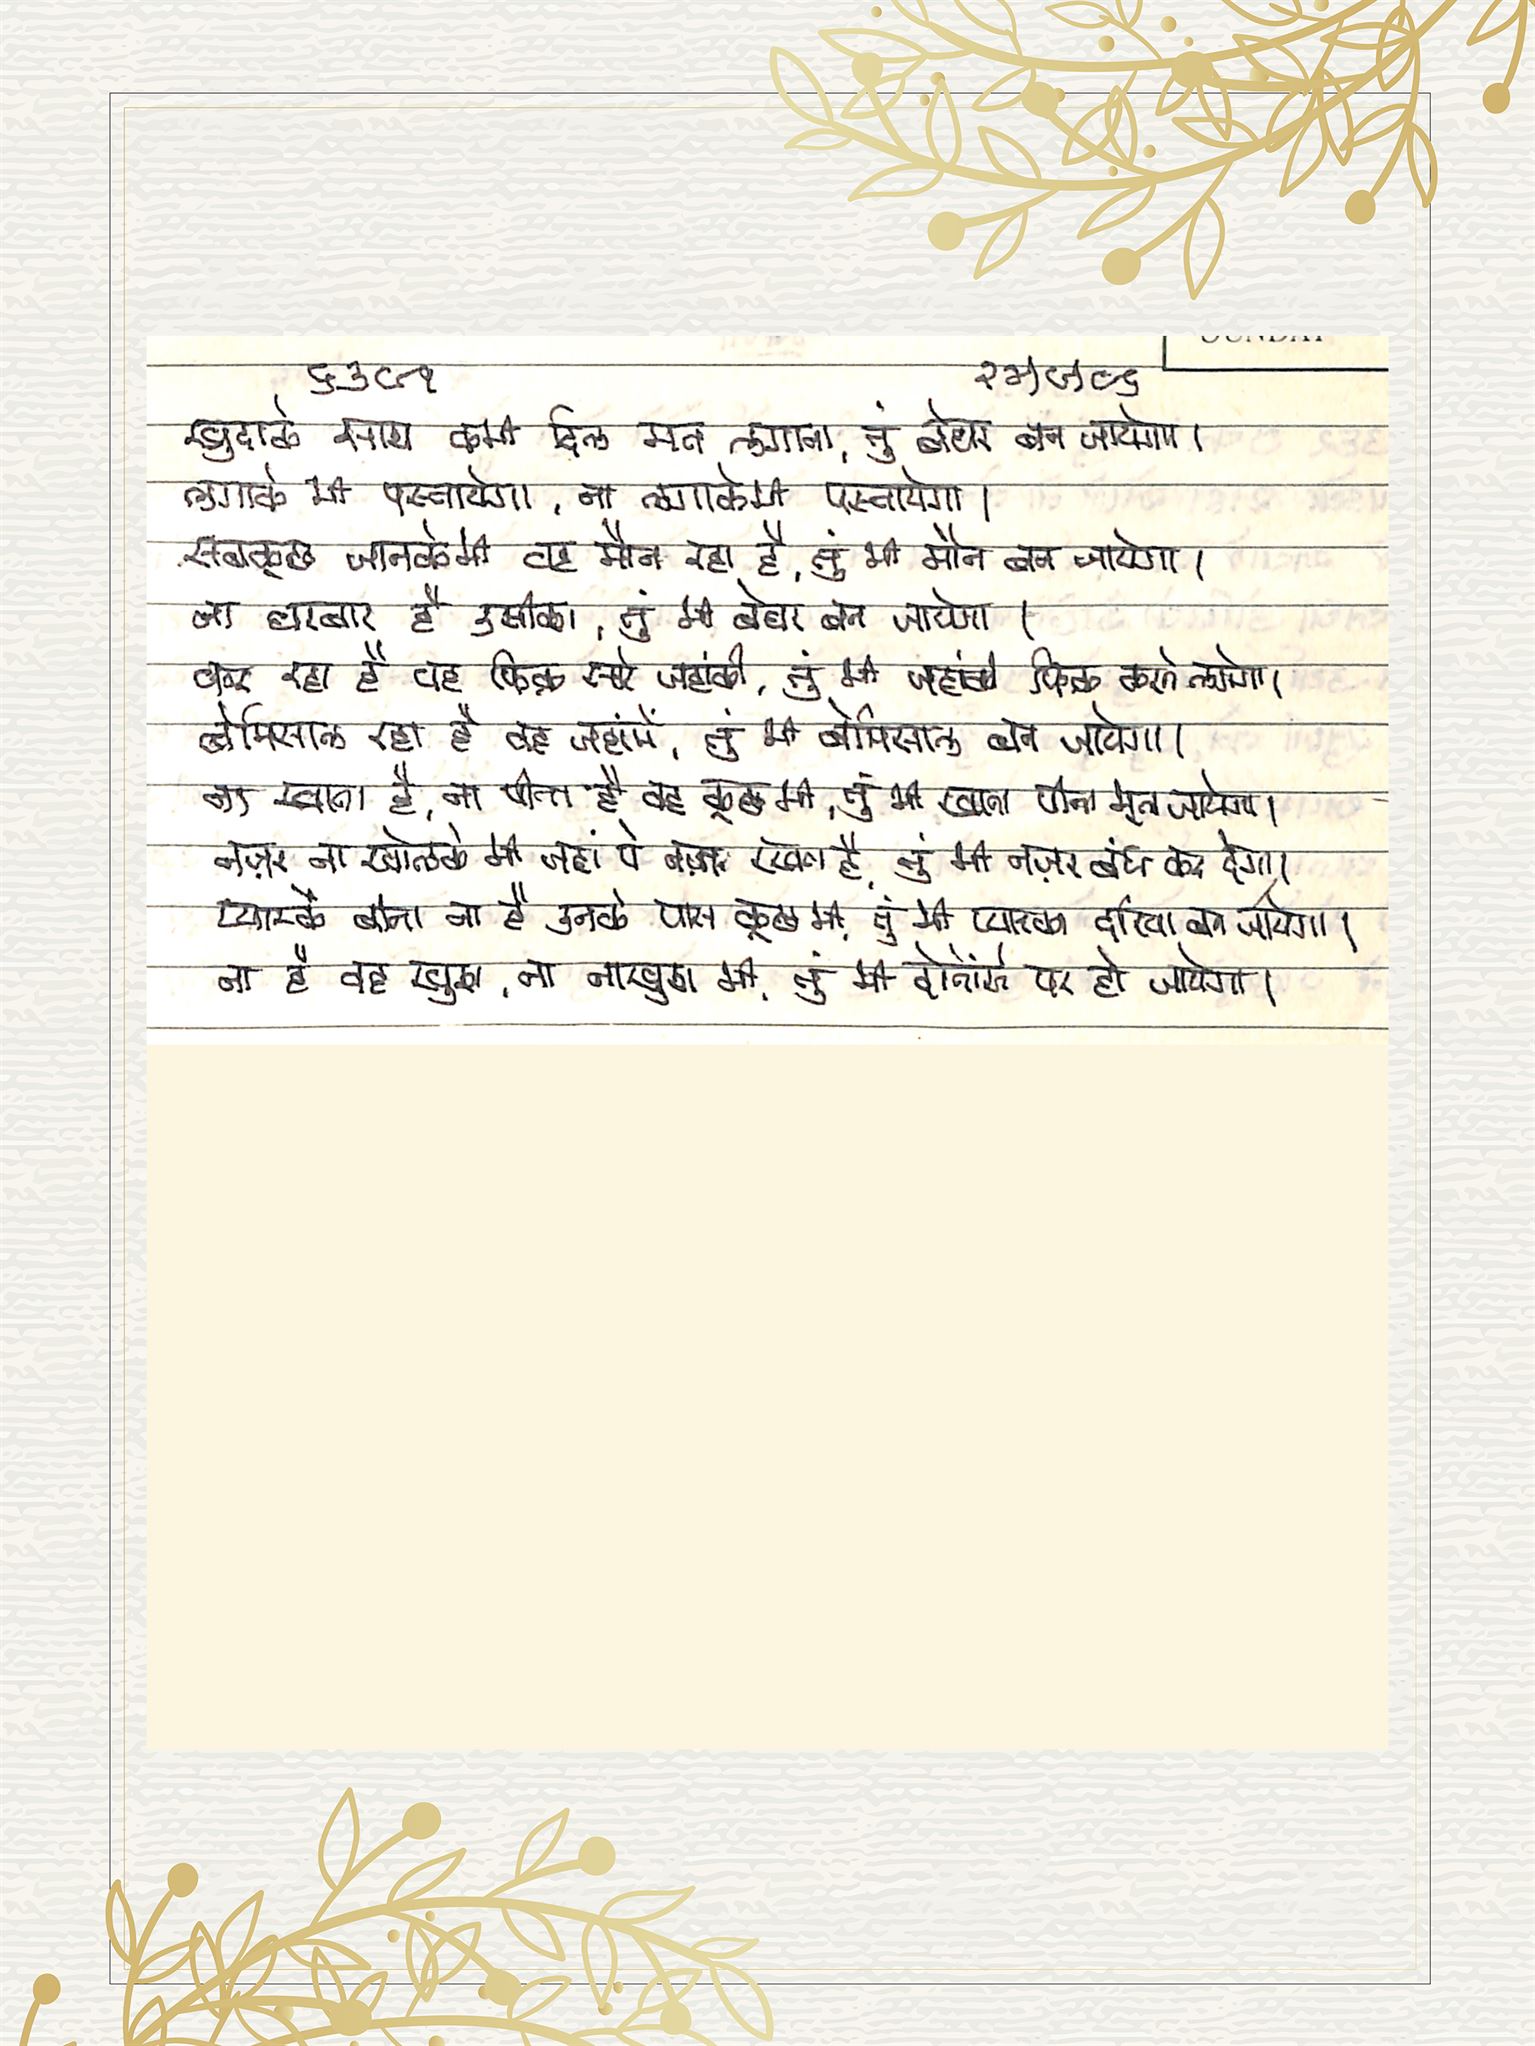 SUNDAY
खुदाके साथ कभी दिल मत लगाना, तुं बेघर बन जायेगा।
लगाके भी पस्तायेगा, ना लगाकेभी पस्तायेगा।
सबकूछ जानकेभी वह मौन रहा है, तुं भी मौन बन जायेगा।
ना घरबार है उसीका, तुं भी बेघर बन जायेगा।
कर रहा है वह फिक्र सारे जहांकी, तुं भी जहांकी फिक्र करने लगेगा।
बेमिसाल रहा है वह जहांमें, तुं भी बेमिसाल बन जायेगा।
ना खाता है, ना पीता है वह कूछ भी, तुं भी खाना पीना भूल जायेगा।
नज़र ना खोलके भी जहां पे नज़र रखता है, तुं भी नज़र बंध कर देगा।
प्यारके बीना ना है उनके पास कूछ भी, तुं भी प्यारका दरिया बन जायेगा।
ना है वह खुश, ना नाखुश भी, तुं भी दोनोंसे पर हो जायेगा।